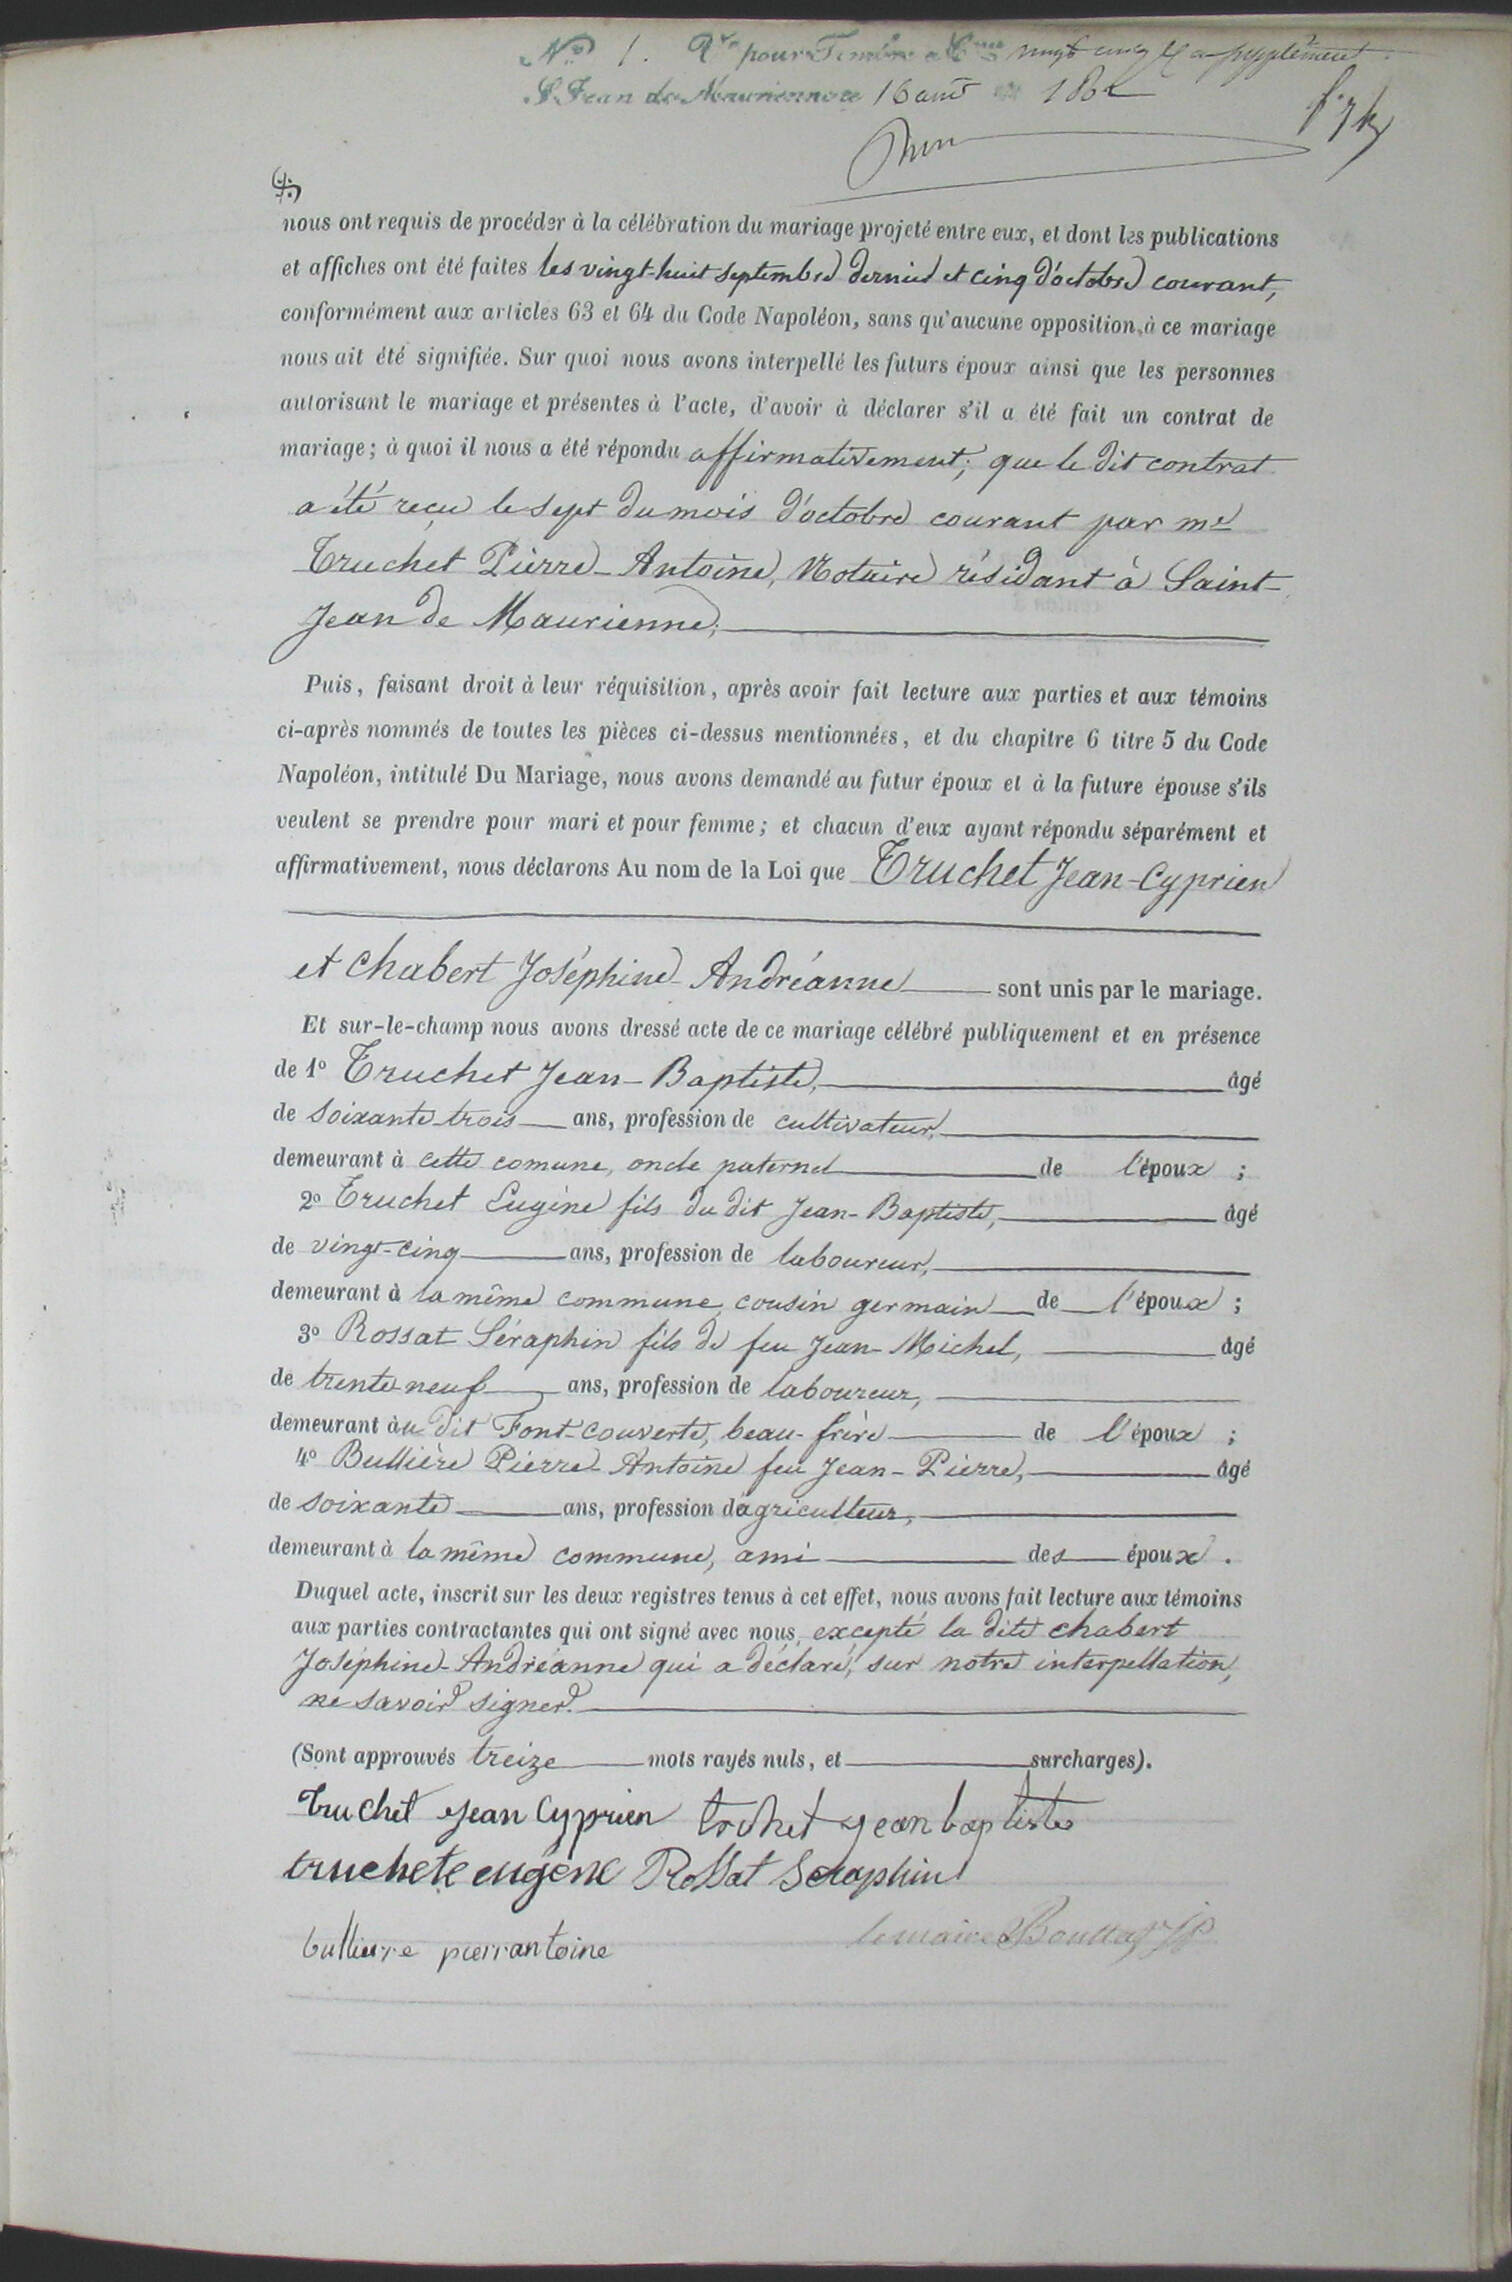 N° 1. Vu pour Timbre à vingt cinq c. supplément
St Jean de Maurienne 16 186
nous ont requis de procéder à la célébration du mariage projeté entre eux, et dont les publications
et affiches ont été faites les vingt-huit septembre dernier et cinq d'octobre courant,
conformément aux articles 63 et 64 du Code Napoléon, sans qu'aucune opposition à ce mariage
nous ait été signifiée. Sur quoi nous avons interpellé les futurs époux ainsi que les personnes
autorisant le mariage et présentes à l'acte, d'avoir à déclarer s'il a été fait un contrat de
mariage; à quoi il nous a été répondu affirmativement; que le dit contrat
a été reçu le sept du mois d'octobre courant par me
Truchet Pierre-Antoine, Notaire résidant à Saint-
Jean de Maurienne;
Puis, faisant droit à leur réquisition, après avoir fait lecture aux parties et aux témoins
ci-après nommés de toutes les pièces ci-dessus mentionnées, et du chapitre 6 titre 5 du Code
Napoléon, intitulé Du Mariage, nous avons demandé au futur époux et à la future épouse s'ils
veulent se prendre pour mari et pour femme; et chacun d'eux ayant répondu séparément et
affirmativement, nous déclarons Au nom de la Loi que Truchet Jean-Cyprien
et Chabert Joséphine-Andréanne sont unis par le mariage.
Et sur-le-champ nous avons dressé acte de ce mariage célébré publiquement et en présence
de 1° Truchet Jean-Baptiste, âgé
de soixante-trois ans, profession de cultivateur,
demeurant à cette comune, oncle paternel de l'époux ;
2° Truchet Eugène fils du dit Jean-Baptiste, âgé
de vingt-cinq ans, profession de laboureur,
demeurant à la même commune, cousin germain de l'époux ;
3° Rossat Séraphin fils de feu Jean-Michel, âgé
de trente neuf ans, profession de laboureur,
demeurant àu dit Font-couverte, beau-frère de l'époux ;
4° Bullière Pierre-Antoine feu Jean-Pierre, âgé
de soixante ans, profession d'agriculteur,
demeurant à la même commune, ami des époux.
Duquel acte, inscrit sur les deux registres tenus à cet effet, nous avons fait lecture aux témoins
aux parties contractantes qui ont signé avec nous, excepté la dite Chabert
Joséphine-Andréanne qui a déclaré, sur notre interpellation,
ne savoir signer.
(Sont approuvés treize mots rayés nuls, et surcharges).
Truchet Jean Cyprien trchet jean baptiste
truchete eugene Rossat Seraphin
bulliere pierrantoine le maire Bouttaz JP